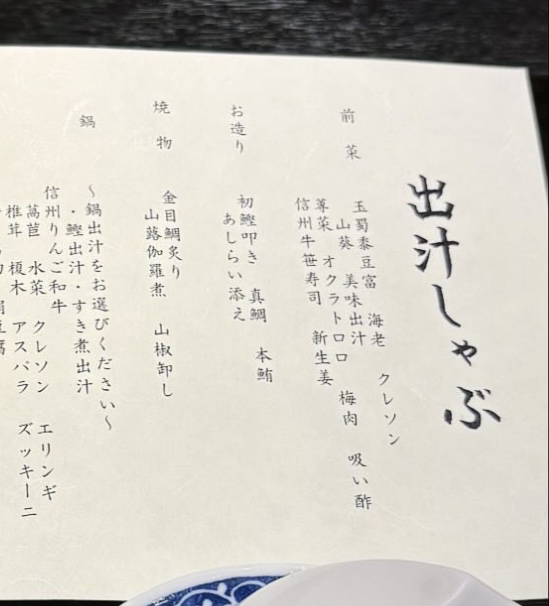 出汁しゃぶ
前菜
玉蜀黍豆富 海老 クレソン
山葵 美味出汁
蓴菜 オクラトロロ 梅肉 吸い酢
信州牛笹寿司 新生姜
お造り
初鰹叩き 真鯛 本鮪
あしらい添え
焼物
金目鯛炙り
山蕗伽羅煮 山椒卸し
鍋
～鍋出汁をお選びください～
・鰹出汁・すき煮出汁
信州りんご和牛
萵苣 水菜 クレソン エリンギ
椎茸 榎木 アスパラ ズッキーニ